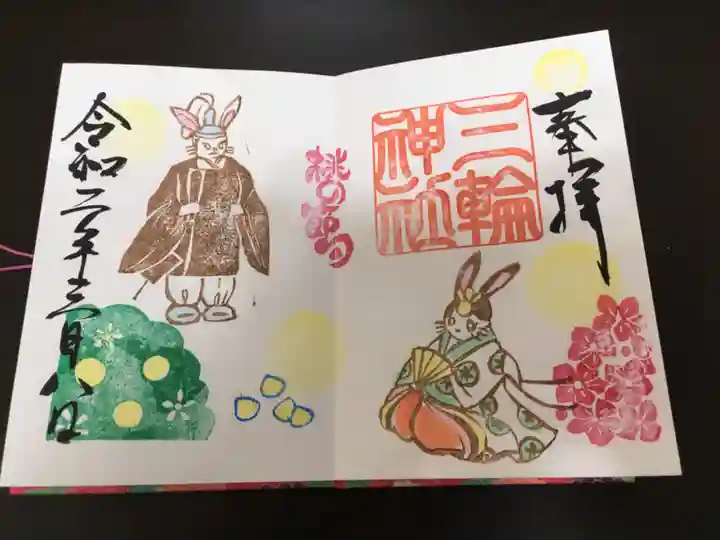 奉拝
三輪神社
桃の節句
令和二年三月八日